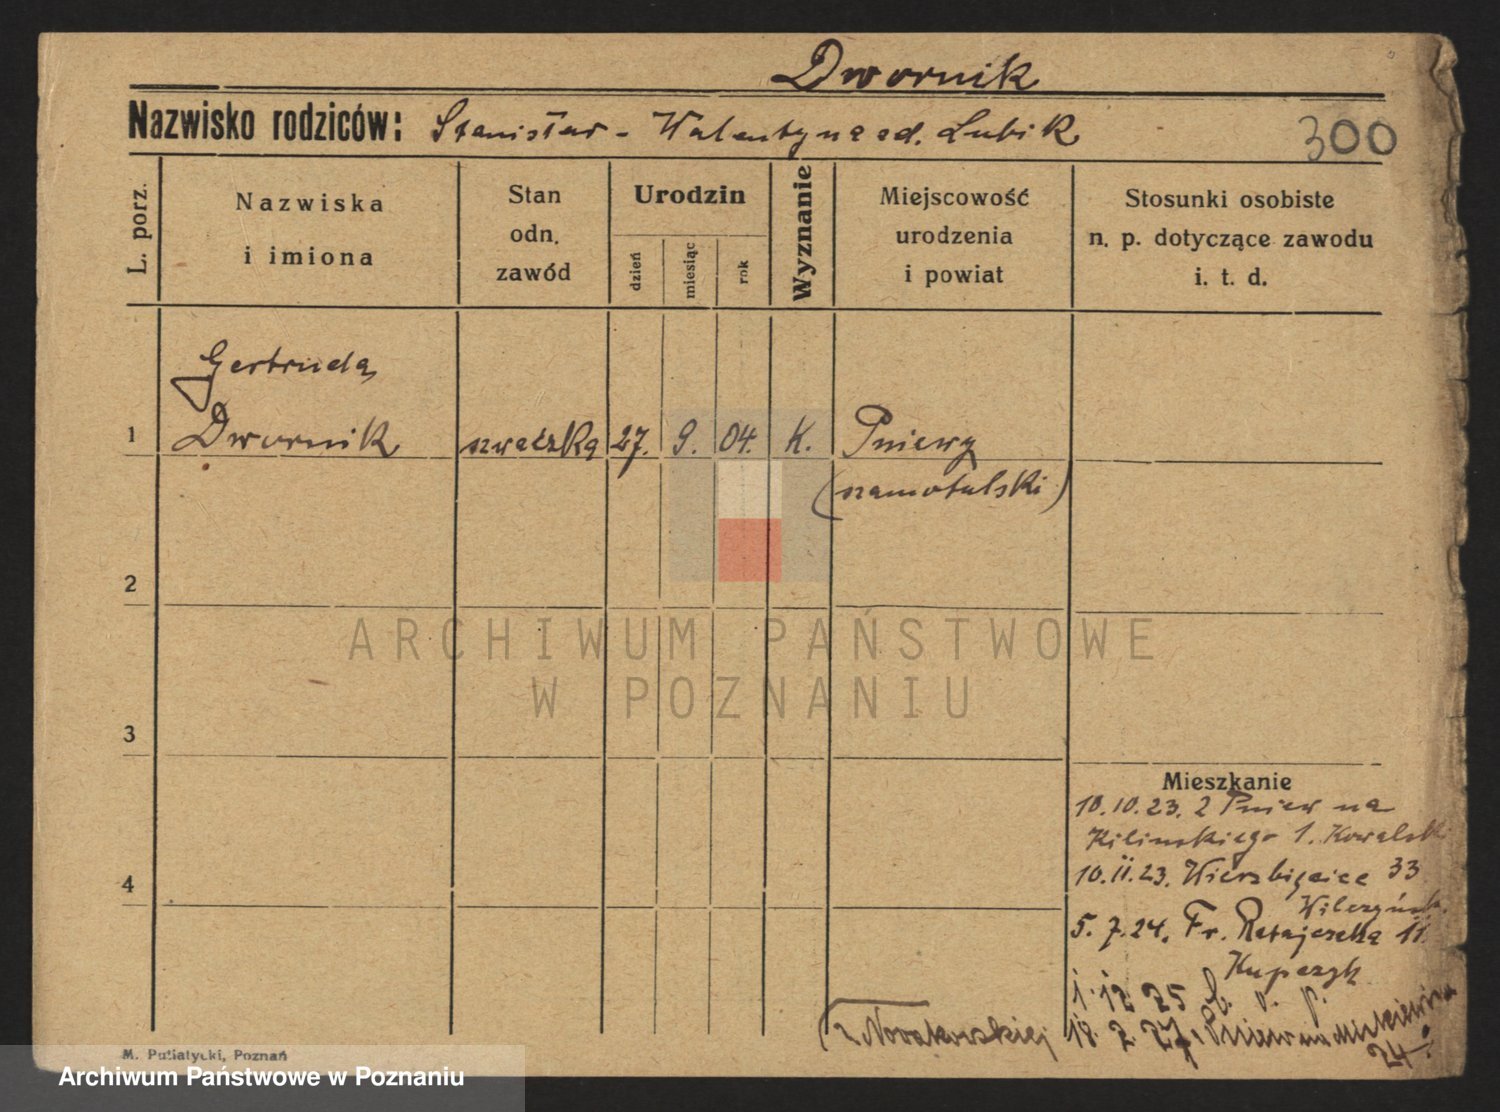 Dwornik
Nazwisko rodziców: Stanisław - Walentyna ed. Lubik
300
L. porz.
Nazwiska
i imiona
Stan
odn.
zawód
Urodzin
dzień
miesiąc
rok
Wyznanie
Miejscowość
urodzenia
i powiat
Stosunki osobiste
n. p. dotyczące zawodu
i. t. d.
Gertruda
1 Dwornik szwaczka 27. 9. 04. K. Pniewy
(szamotulski)
2
3
4
ARCHIWUM PAŃSTWOWE
W POZNANIU
Mieszkanie
10.10.23. z Pniew na
Kilinskiego 1. Kowalski
10.II.23. Wierzbięcice 33
5. 7. 24. Fr. Ratajczaka 11
Kupczyk
1. 12. 25 b. o. p.
z Nowakowskiej 18. 2. 27, Pniew na Mickiewicza
24
M. Putiatycki, Poznań
Archiwum Państwowe w Poznaniu